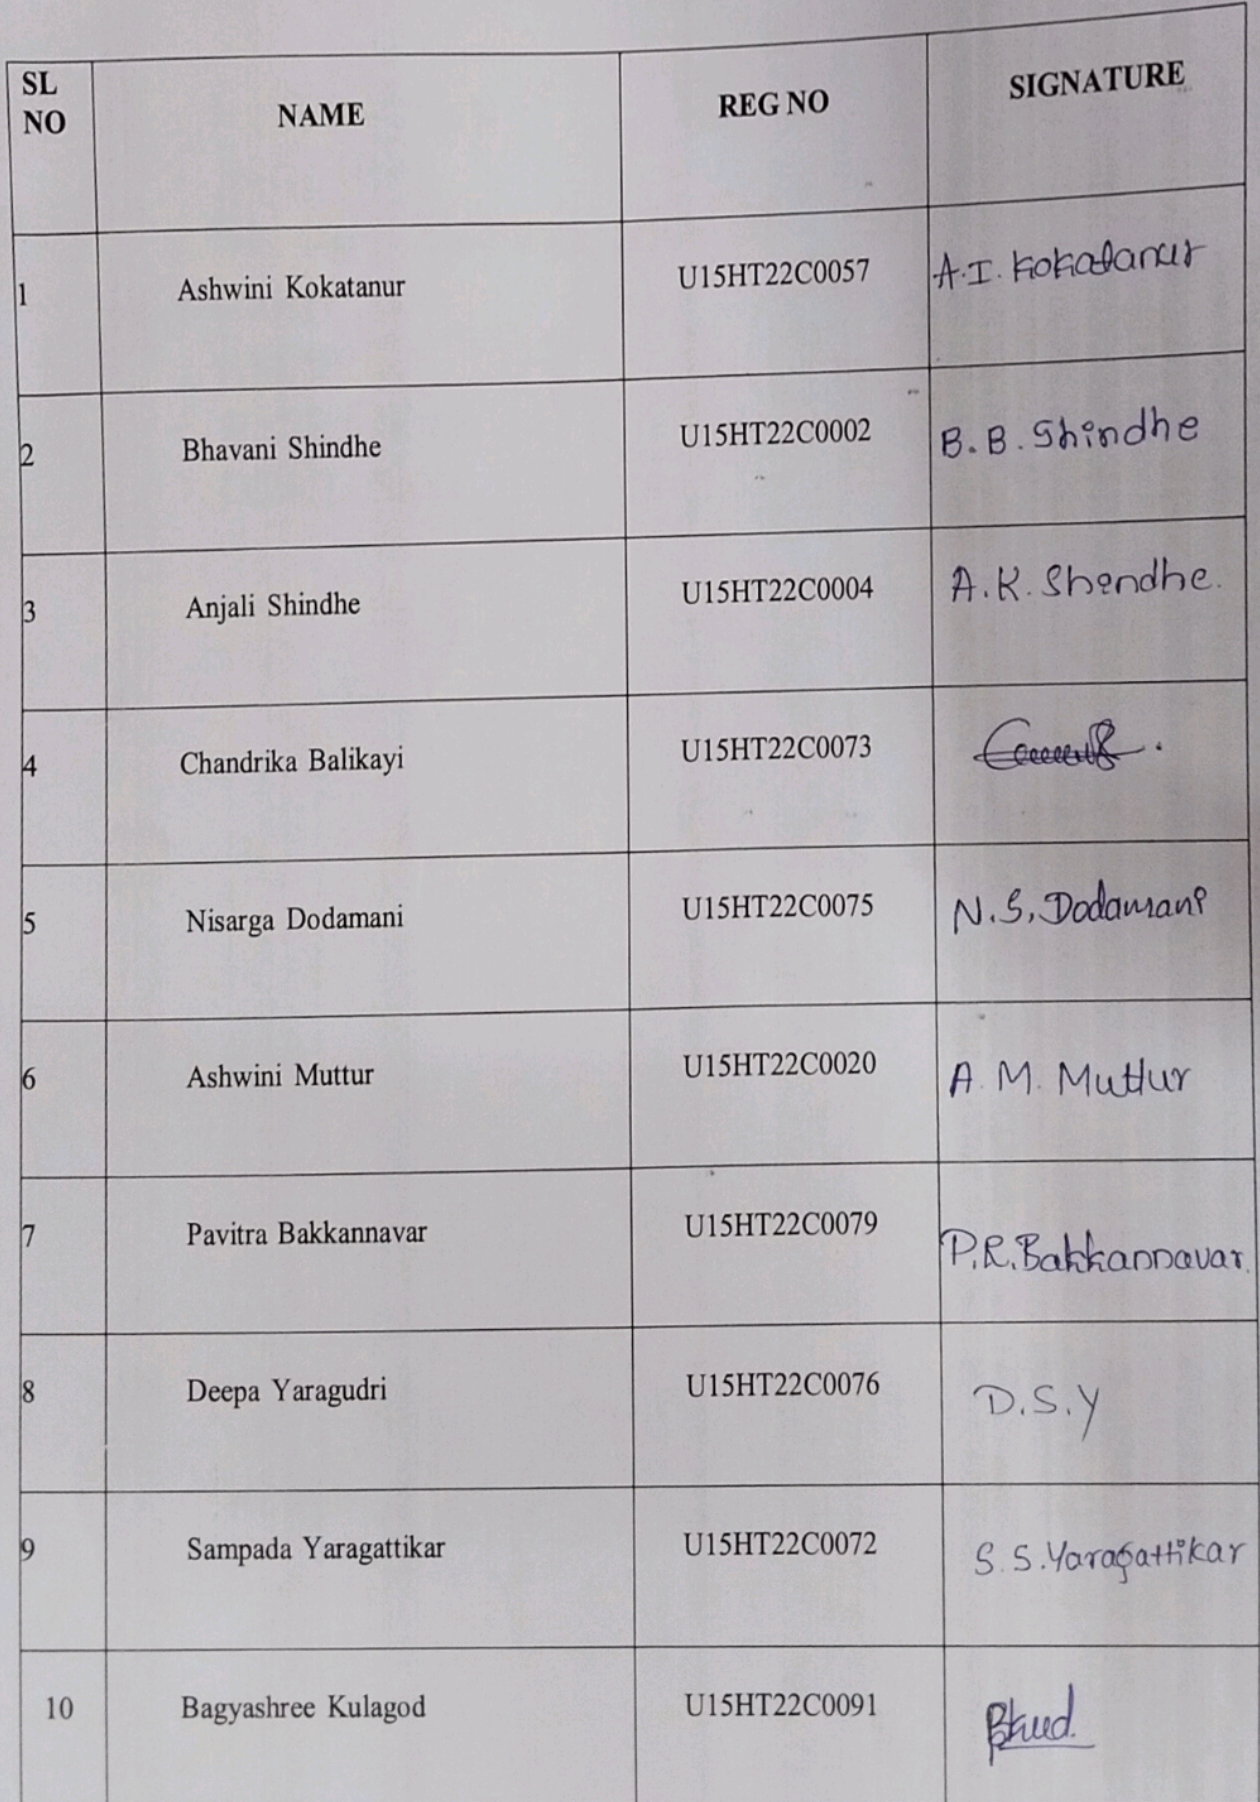 SL NO NAME REG NO SIGNATURE
1 Ashwini Kokatanur U15HT22C0057 A.I. Kokatanur
2 Bhavani Shindhe U15HT22C0002 B.B. Shindhe
3 Anjali Shindhe U15HT22C0004 A.K. Shendhe.
4 Chandrika Balikayi U15HT22C0073
5 Nisarga Dodamani U15HT22C0075 N.S. Dodamani
6 Ashwini Muttur U15HT22C0020 A. M. Muttur
7 Pavitra Bakkannavar U15HT22C0079 P.R. Bakkannavar.
8 Deepa Yaragudri U15HT22C0076 D.S.Y
9 Sampada Yaragattikar U15HT22C0072 S.S. Yaragattikar
10 Bagyashree Kulagod U15HT22C0091